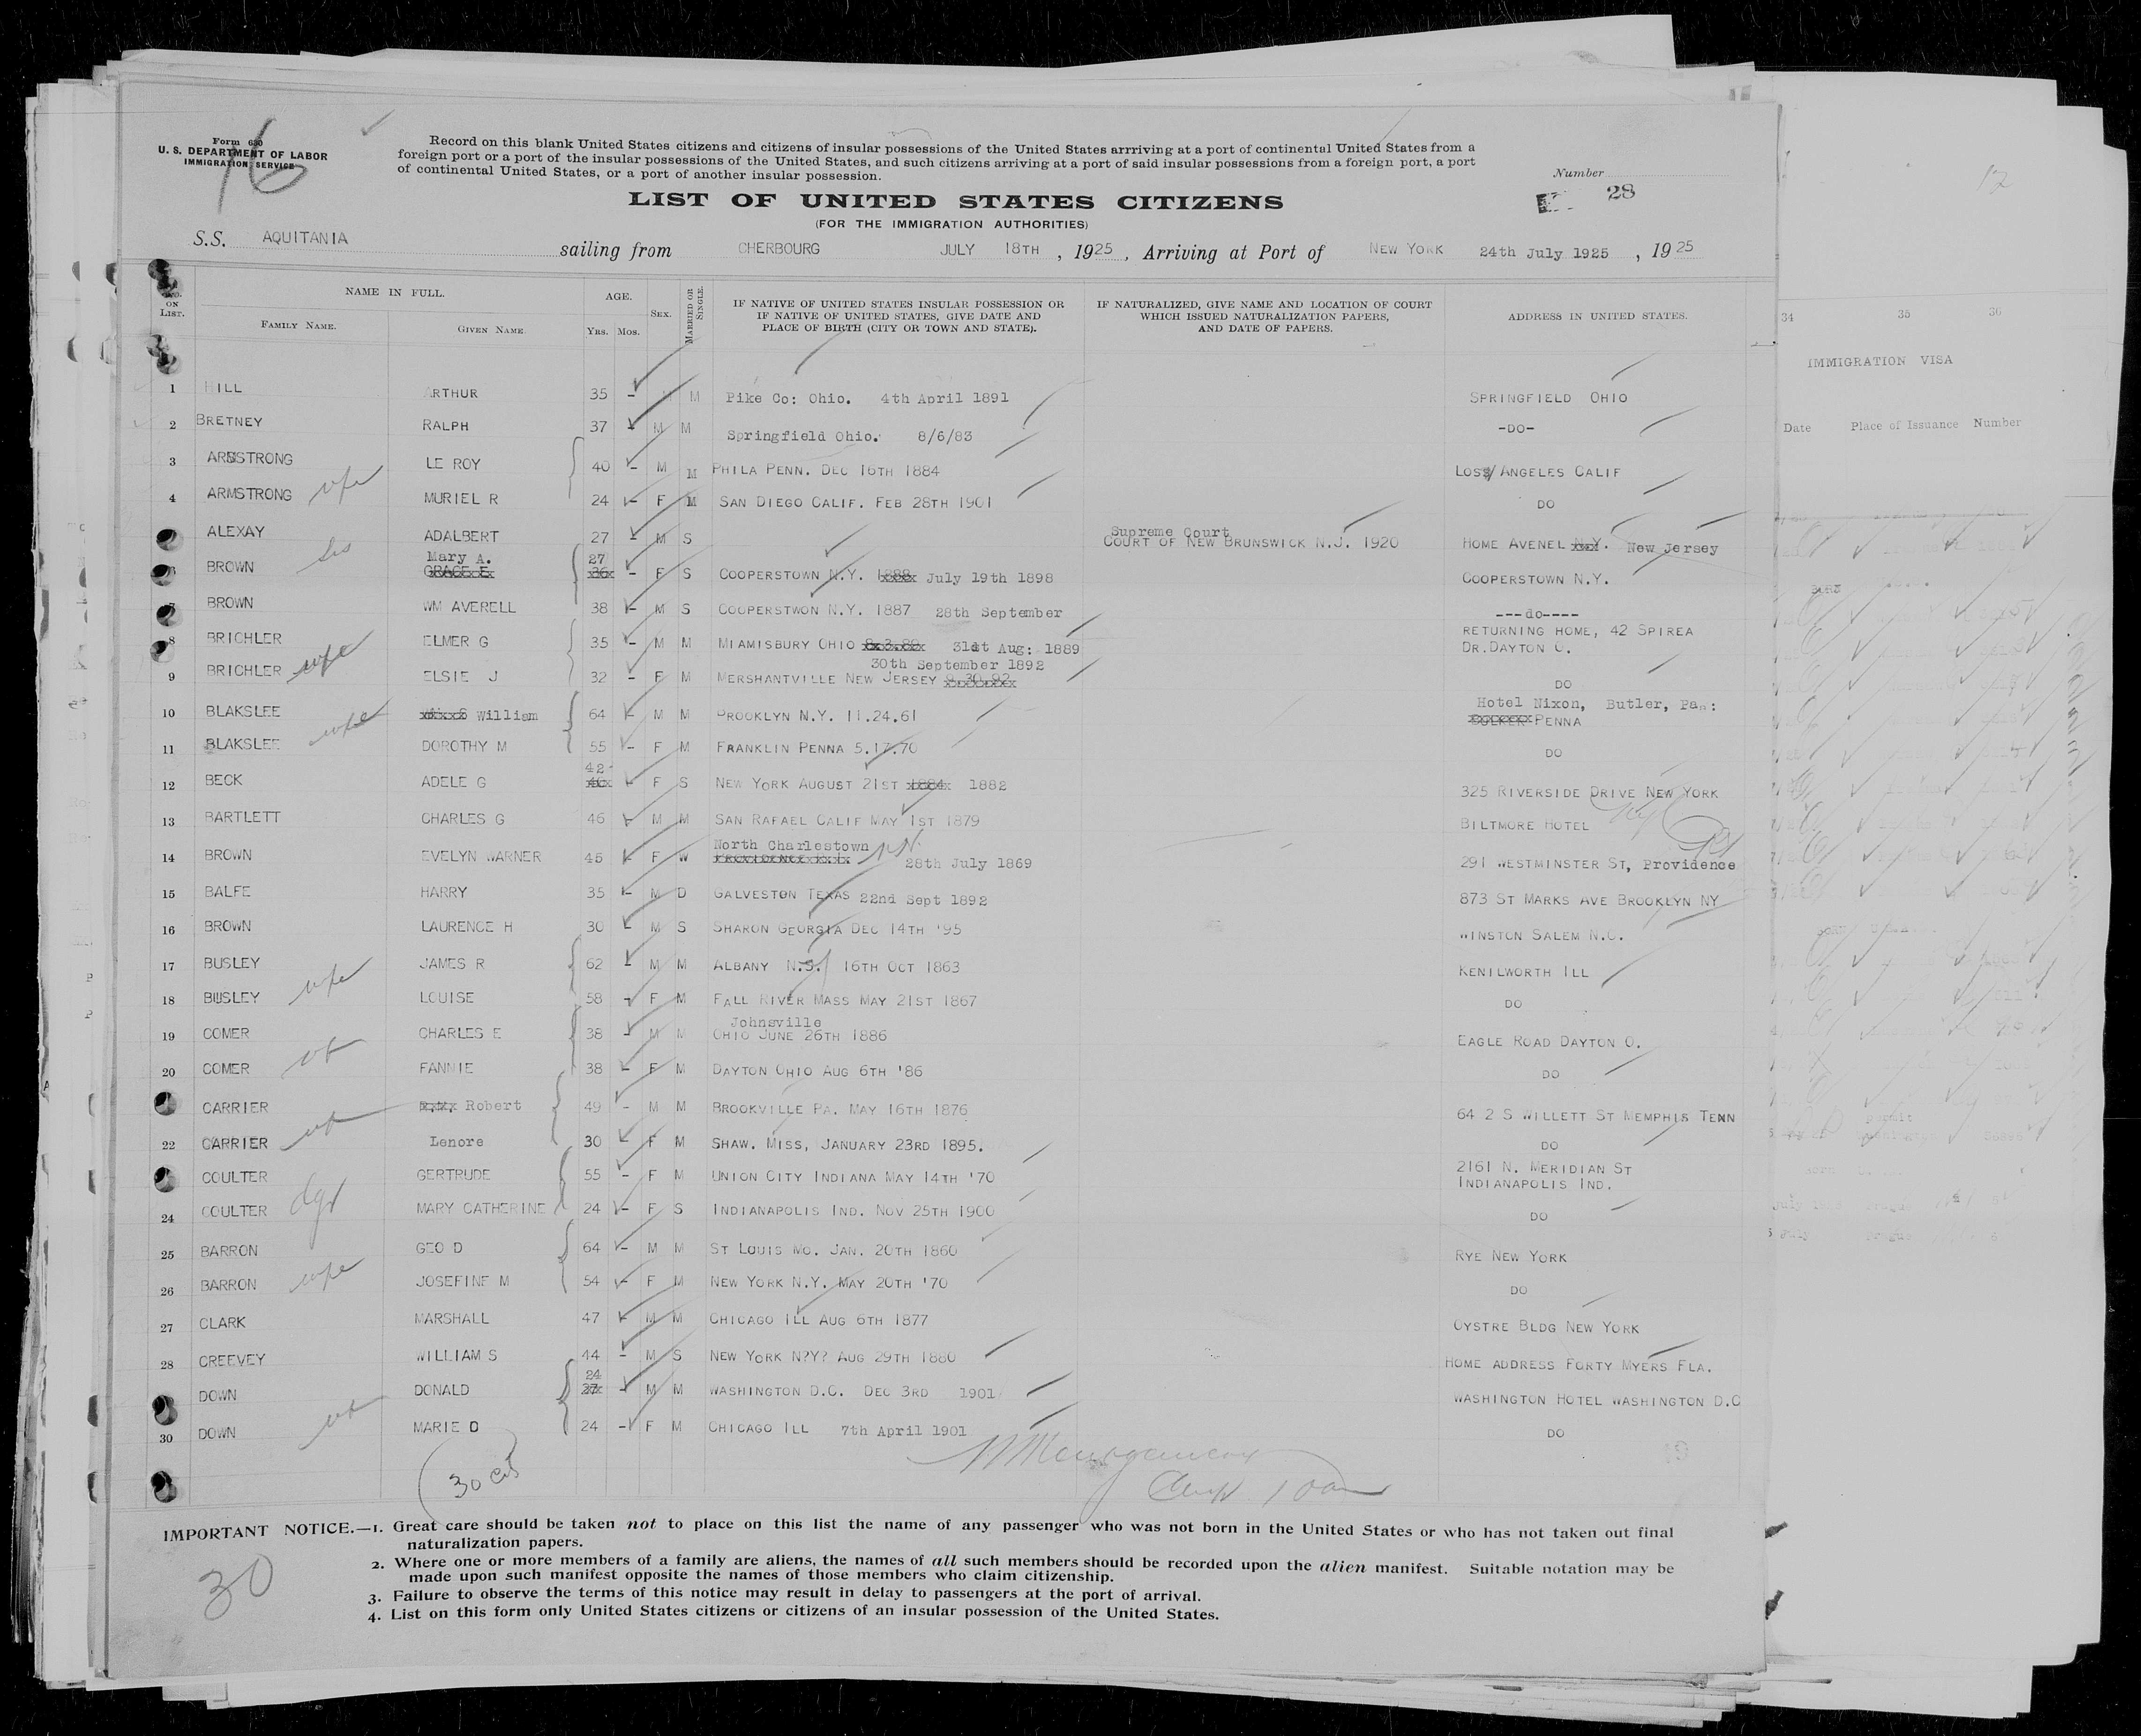 Form 630
U. S. DEPARTMENT OF LABOR
IMMIGRATION SERVICE
16
Record on this blank United States citizens and citizens of insular possessions of the United States arrriving at a port of continental United States from a
foreign port or a port of the insular possessions of the United States, and such citizens arriving at a port of said insular possessions from a foreign port, a port
of continental United States, or a port of another insular possession.
Number
28
LIST OF UNITED STATES CITIZENS
(FOR THE IMMIGRATION AUTHORITIES)
S.S. AQUITANIA sailing from CHERBOURG JULY 18TH , 1925, Arriving at Port of NEW YORK 24th July 1925 , 1925
No. ON LIST. NAME IN FULL. FAMILY NAME. GIVEN NAME. AGE. YRS. MOS. SEX. MARRIED OR SINGLE. IF NATIVE OF UNITED STATES INSULAR POSSESSION OR IF NATIVE OF UNITED STATES, GIVE DATE AND PLACE OF BIRTH (CITY OR TOWN AND STATE). IF NATURALIZED, GIVE NAME AND LOCATION OF COURT WHICH ISSUED NATURALIZATION PAPERS, AND DATE OF PAPERS. ADDRESS IN UNITED STATES.
1 HILL ARTHUR 35 - M M Pike Co: Ohio. 4th April 1891 SPRINGFIELD OHIO
2 BRETNEY RALPH 37 - M M Springfield Ohio. 8/6/83 -DO-
3 ARMSTRONG LE ROY 40 - M M PHILA PENN. DEC 16TH 1884 LOS ANGELES CALIF
4 ARMSTRONG wife MURIEL R 24 - F M SAN DIEGO CALIF. FEB 28TH 1901 DO
ALEXAY ADALBERT 27 - M S Supreme Court COURT OF NEW BRUNSWICK N.J. 1920 HOME AVENEL N.Y. New Jersey
6 BROWN sis Mary A. GRACE E 27 36 - F S COOPERSTOWN N.Y. 1888 July 19th 1898 COOPERSTOWN N.Y.
7 BROWN WM AVERELL 38 - M S COOPERSTWON N.Y. 1887 28th September ---do----
8 BRICHLER ELMER G 35 - M M MIAMISBURY OHIO 8.3.89 31st Aug: 1889 RETURNING HOME, 42 SPIREA DR.DAYTON O.
9 BRICHLER wife ELSIE J 32 - F M MERSHANTVILLE NEW JERSEY 9.30.92 30th September 1892 DO
10 BLAKSLEE William 64 - M M PROOKLYN N.Y. 11.24.61 Hotel Nixon, Butler, Pa: PENNA
11 BLAKSLEE wife DOROTHY M 55 - F M FRANKLIN PENNA 5.17.70 DO
12 BECK ADELE G 42 40 - F S NEW YORK AUGUST 21ST 1884 1882 325 RIVERSIDE DRIVE NEW YORK
13 BARTLETT CHARLES G 46 - M M SAN RAFAEL CALIF MAY 1ST 1879 BILTMORE HOTEL NY
14 BROWN EVELYN WARNER 45 - F W North Charlestown NH 28th July 1869 291 WESTMINSTER ST, Providence RI
15 BALFE HARRY 35 - M D GALVESTON TEXAS 22nd Sept 1892 873 ST MARKS AVE BROOKLYN NY
16 BROWN LAURENCE H 30 - M S SHARON GEORGIA DEC 14TH '95 WINSTON SALEM N.C.
17 BUSLEY JAMES R 62 - M M ALBANY 16TH OCT 1863 KENILWORTH ILL
18 BUSLEY wife LOUISE 58 - F M FALL RIVER MASS MAY 21ST 1867 DO
19 COMER CHARLES E 38 - M M Johnsville OHIO JUNE 26TH 1886 EAGLE ROAD DAYTON O.
20 COMER wf FANNIE 38 - F M DAYTON OHIO AUG 6TH '86 DO
CARRIER Robert 49 - M M BROOKVILLE PA. MAY 16TH 1876 64 2 S WILLETT ST MEMPHIS TENN
22 CARRIER wf Lenore 30 - F M SHAW. MISS, JANUARY 23RD 1895. DO
COULTER GERTRUDE 55 - F M UNION CITY INDIANA MAY 14TH '70 2161 N. MERIDIAN ST INDIANAPOLIS IND.
24 COULTER dgt MARY CATHERINE 24 - F S INDIANAPOLIS IND. NOV 25TH 1900 DO
25 BARRON GEO D 64 - M M ST LOUIS MO. JAN. 20TH 1860 RYE NEW YORK
26 BARRON wife JOSEFINE M 54 - F M NEW YORK N.Y. MAY 20TH '70 DO
27 CLARK MARSHALL 47 - M M CHICAGO ILL AUG 6TH 1877 OYSTRE BLDG NEW YORK
28 CREEVEY WILLIAM S 44 - M S NEW YORK N?Y? AUG 29TH 1880 HOME ADDRESS FORTY MYERS FLA.
DOWN DONALD 24 27 - M M WASHINGTON D.C. DEC 3RD 1901 WASHINGTON HOTEL WASHINGTON D.C
30 DOWN wf MARIE D 24 - F M CHICAGO ILL 7th April 1901 DO
30 cit
IMPORTANT NOTICE.—1. Great care should be taken not to place on this list the name of any passenger who was not born in the United States or who has not taken out final
naturalization papers.
2. Where one or more members of a family are aliens, the names of all such members should be recorded upon the alien manifest. Suitable notation may be
made upon such manifest opposite the names of those members who claim citizenship.
3. Failure to observe the terms of this notice may result in delay to passengers at the port of arrival.
4. List on this form only United States citizens or citizens of an insular possession of the United States.
30
17
34 35 36
IMMIGRATION VISA
Date Place of Issuance Number